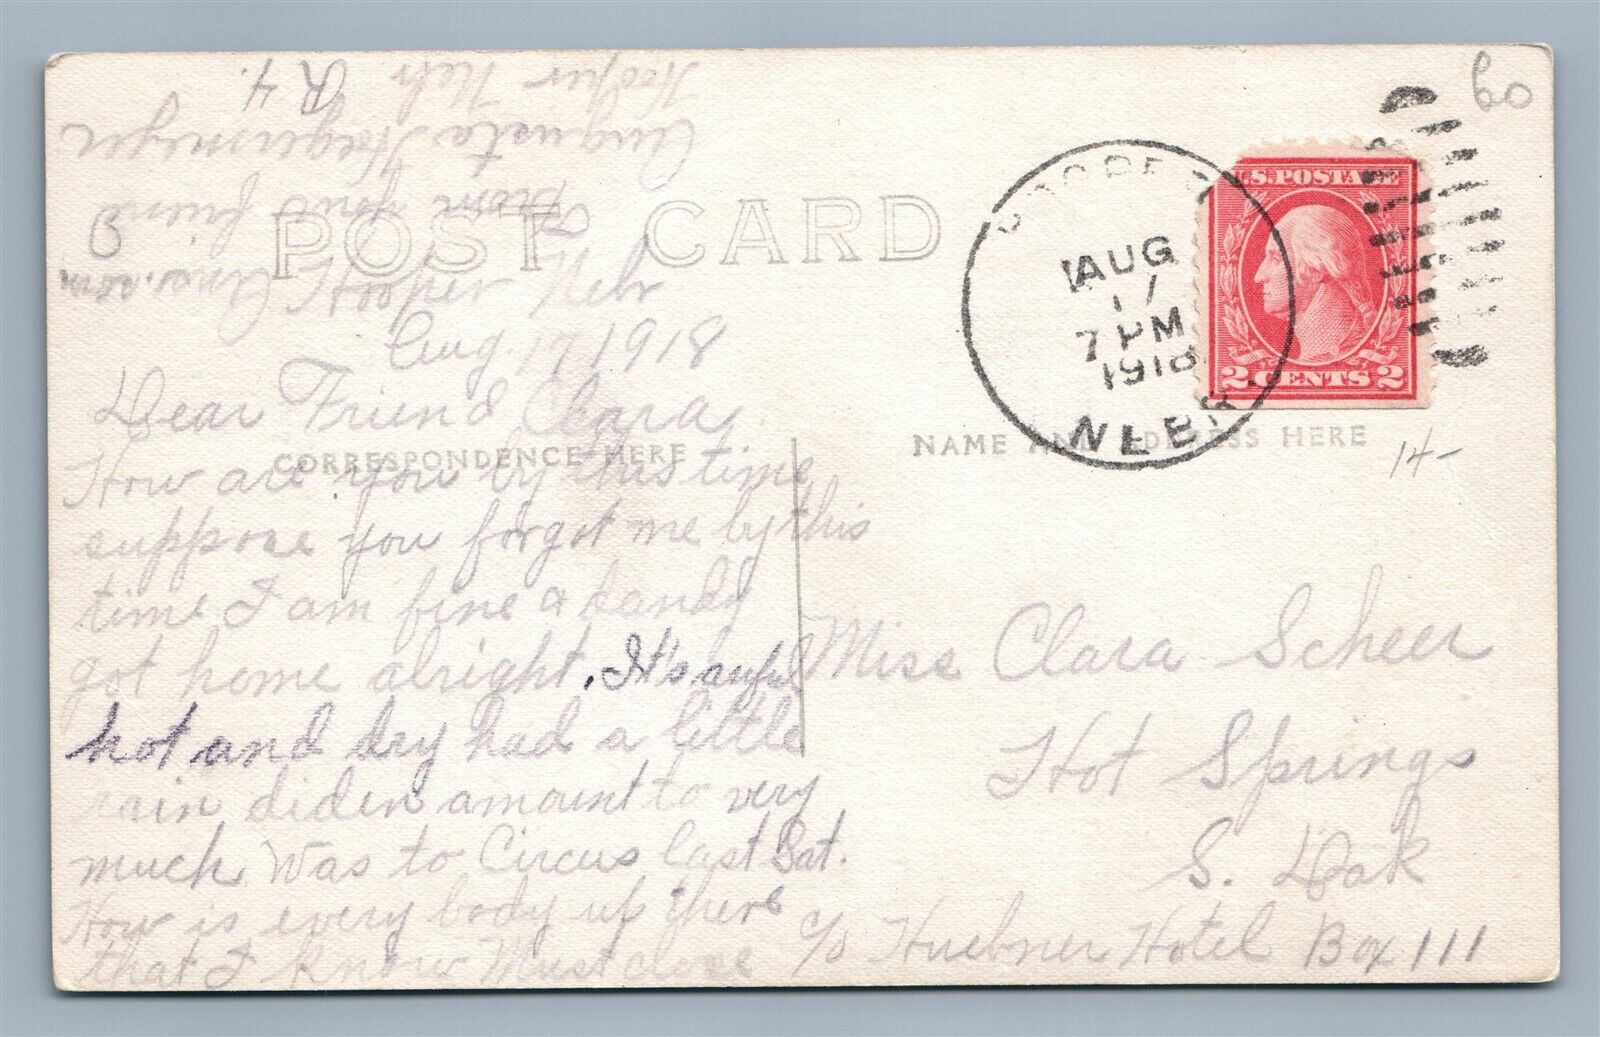 Hooper Nebr
Aug. 17, 1918
Dear Friend Clara,
How are you by this time
suppose you forgot me by this
time I am fine & dandy
got home alright. It's awful
hot and dry had a little
rain diden amount to very
much. Was to Circus last Sat.
How is every body up there
that I know Must close
Answer.
From Your friend
Augusta
Hooper Neb. R 4.
POST CARD
CORRESPONDENCE HERE
NAME AND ADDRESS HERE
AUG
17
7 PM
1918
NEBR
U.S. POSTAGE
2 CENTS 2
60
14-
Miss Clara Scheer
Hot Springs
S. Dak
c/o Huebner Hotel Box 111